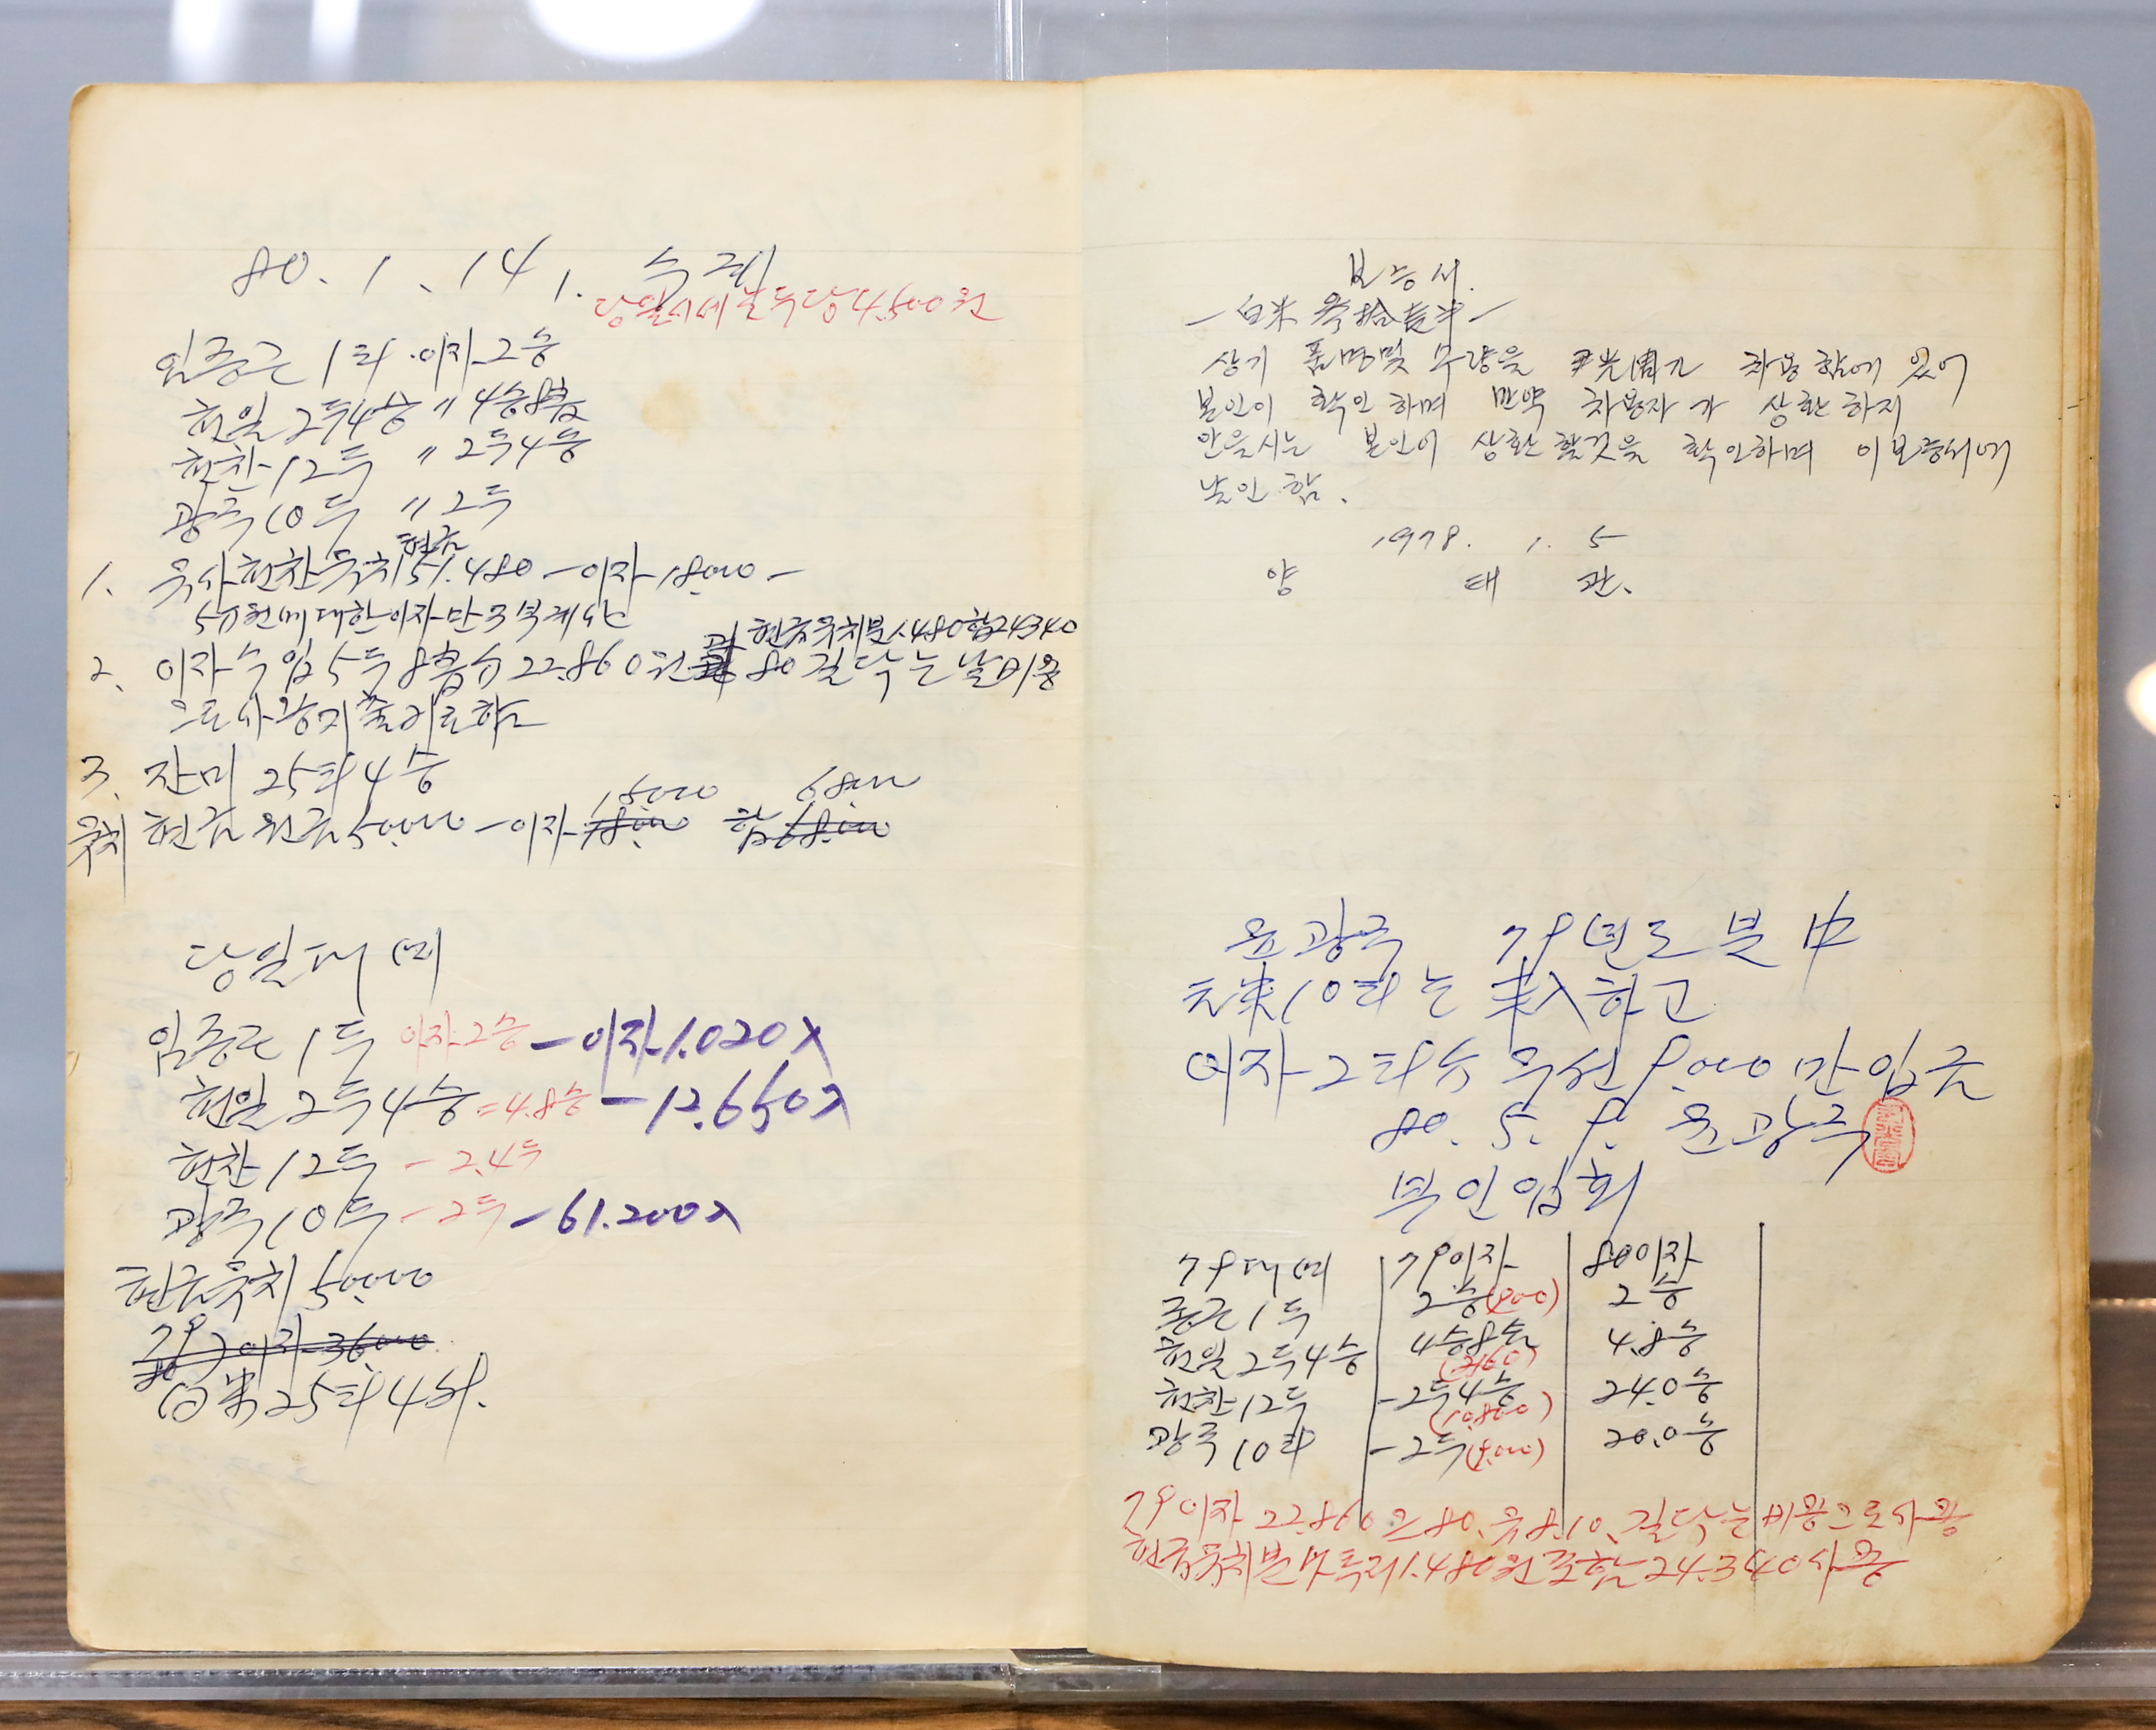 80. 1. 14 1. 수리
당일시세 능두당 4.500원
임종근 1되 이자 2승
현일 2두4승 〃 4승8홉
현찬 12두 〃 2두4승
광주 10두 〃 2두
1. 유사현찬유치 현금 51.480 - 이자 18.000 -
5만원에 대한 이자만 3복계산
현금유치분 1.480합 24340
2. 이자수입 5두8홉분 22.860원 80 길닦는날비용
으로 사용지출키로함
3. 잔미 25되4승
유치 현금원금 50.000 - 이자 18.000 15000 합 68.000 65000
당일대여
임종근 1두 이자 2승 - 이자 1.020 X
현일 2두4승 = 4.8승 - 12.650 X
현찬 12두 - 2.4두
광주 10두 - 2두 - 61.200 X
현금유치 50.000
79 80 이자 36000
白米 25되 4승.
보증서.
- 白米 -
상기 품명및 수량을 차용함에 있어
본인이 확인하며 만약 차용자가 상환하지
안을시는 본인이 상환할것을 확인하며 이보증서에
날인함.
1978. 1. 5
양 태관.
윤광주 79년도분 中
元米 10되는 未入하고
이자 2되 우선 9.000만 입금
80. 5. 9. 윤광주
부인입회
79대여 79이자 80이자
종근 1두 2승 (900) 2승
현일 2두4승 4승8홉 (2160) 4.8승
현찬 12두 - 2두4승 (10.800) 24.0승
광주 10되 - 2두 (9.000) 20.0승
79이자 22.860은 80.유 8.10. 길닦는비용으로사용
현금유치분 1.480원 포함 24.340 사용